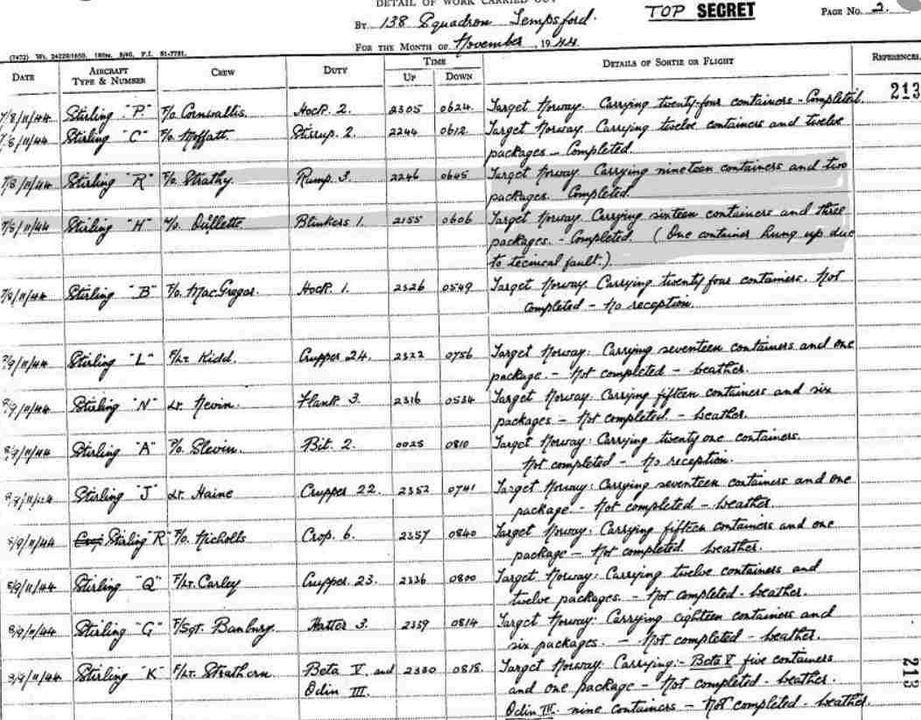 DETAIL OF WORK CARRIED OUT
BY 138 Squadron Tempsford. TOP SECRET PAGE No. 2.
FOR THE MONTH OF November, 1944
DATE AIRCRAFT TYPE & NUMBER CREW DUTY TIME UP DOWN DETAILS OF SORTIE OR FLIGHT REFERENCES
213
7/8/11/44 Stirling "P" F/O Cornwallis Hock. 2. 2305 0624 Target Norway. Carrying twenty-four containers - Completed.
7/8/11/44 Stirling "C" F/O. Moffatt Stirrup. 2 2244 0612 Target Norway. Carrying twelve containers and twelve
packages - Completed.
7/8/11/44 Stirling "R" F/O. Strathy Rump. 3. 2246 0645 Target Norway. Carrying nineteen containers and two
packages. Completed.
7/8/11/44 Stirling "H" Ouillette Blinkers 1. 2155 0606 Target Norway. Carrying sixteen containers and three
packages. - Completed. (One container hung up due
to tecnical fault.)
7/8/11/44 Stirling "B" F/O. MacGregor. Hock. 1. 2326 0549 Target Norway. Carrying twenty four containers. Not
completed - No reception.
8/9/11/44 Stirling "L" F/Lt Kidd. Crupper 24. 2322 0756 Target Norway: Carrying seventeen containers and one
package. - Not completed - weather.
8/9/11/44 Stirling "N" Lt. Nevin. Flank. 3 2316 0534 Target Norway: Carrying fifteen containers and six
packages - Not completed - weather.
8/9/11/44 Stirling "A" Slevin. Bit. 2. 0025 0810 Target Norway: Carrying twenty one containers.
Not completed - No reception.
8/9/11/44 Stirling "J" Lt. Haine Crupper 22. 2352 0741 Target Norway: Carrying seventeen containers and one
package - Not completed - weather.
8/9/11/44 Stirling "R" F/O. Nicholls Crop. 6. 2357 0840 Target Norway: Carrying fifteen containers and one
package - Not completed. weather.
8/9/11/44 Stirling "Q" F/Lt. Carley Crupper. 23. 2336 0800 Target Norway: Carrying twelve containers and
twelve packages. - Not completed - weather.
8/9/11/44 Stirling "G" F/Sgt. Banbury. Hatter 3. 2359 0814 Target Norway: Carrying eighteen containers and
six packages. - Not completed - weather.
8/9/11/44 Stirling "K" F/Lt. Strathern Beta V and 2330 0818. Target Norway. Carrying:- Beta V five containers
Odin III. and one package - Not completed - weather.
Odin III. nine containers - Not completed - weather.
213